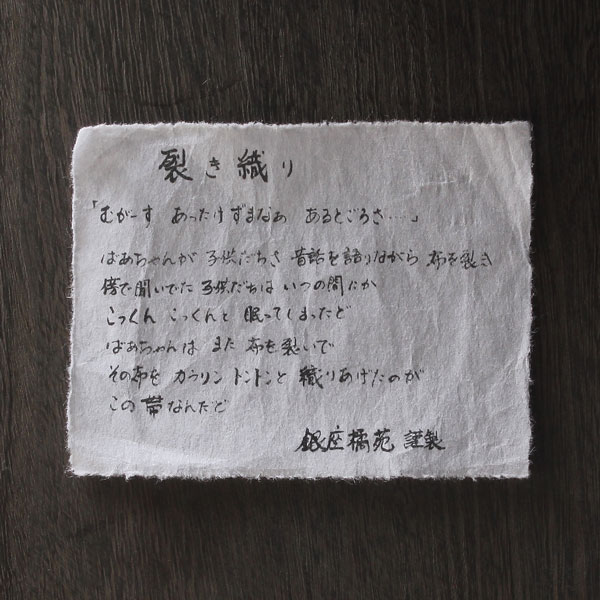 裂き織り
「むがーす あったけずまなあ あるとごろさ……」
ばあちゃんが 子供だちさ 昔話を語りながら 布を裂き
傍で聞いでた 子供だちは いつの間にか
こっくん こっくんと 眠ってしまったど
ばあちゃんは また 布を裂いで
その布を カラリン トントンと 織りあげたのが
この 帯なんだど
銀座橘苑 謹製